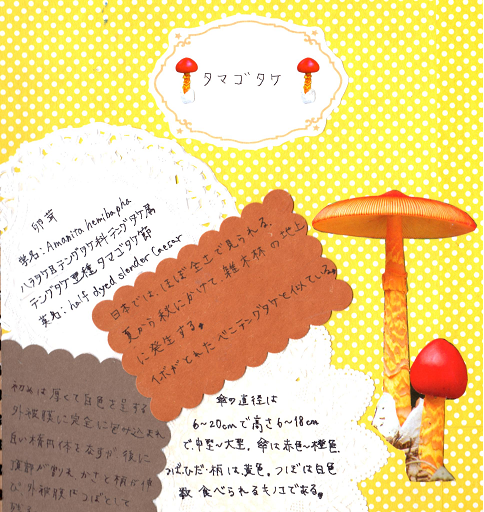 タマゴタケ
卵茸
学名：Amanita hemibapha
ハラタケ目テングタケ科テングタケ属
テングタケ亜種タマゴタケ節
英名：half dyed slender Caesar
日本では、ほぼ全土で見られる。
夏から秋にかけて、雑木林の地上
に発生する。
イボがとれたベニテングタケと似ている。
初めは厚くて白色を呈する
外被膜に完全に包み込まれ
長い楕円体を 後に
頂部が割れ かさと柄は伸
び 外被膜はつぼとして
傘の直径は
6~20cmで高さ6~18cm
で、中型~大型。傘は赤色~橙色、
つば、ひだ・柄は、黄色。つぼは白色
食べられるキノコである。